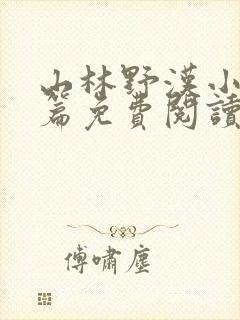 山林野漢小
篇免費閱讀
傅嘯塵